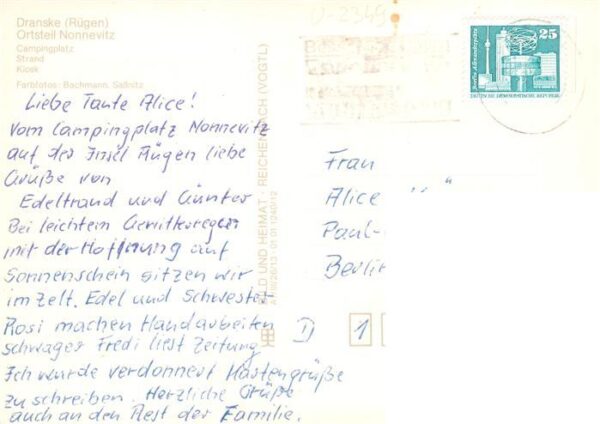 Dranske (Rügen)
Ortsteil Nonnevitz
Campingplatz
Strand
Kiosk
Farbfotos: Bachmann, Saßnitz
Liebe Tante Alice!
Vom Campingplatz Nonnevitz
auf der Insel Rügen liebe
Grüße von
Edeltraud und Günter
Bei leichtem Gewitterregen
mit der Hoffnung auf
Sonnenschein sitzen wir
im Zelt. Edel und Schwester
Rosi machen Handarbeiten
Schwager Fredi liest Zeitung
Ich wurde verdonnert Kartengrüße
zu schreiben. Herzliche Grüße
auch an den Rest der Familie.
BILD UND HEIMAT · REICHENBACH (VOGTL)
D-2349
25
Berlin, Alexanderplatz
DEUTSCHE DEMOKRATISCHE REPUBLIK
Frau
Alice
Paul-
Berlin
D 1